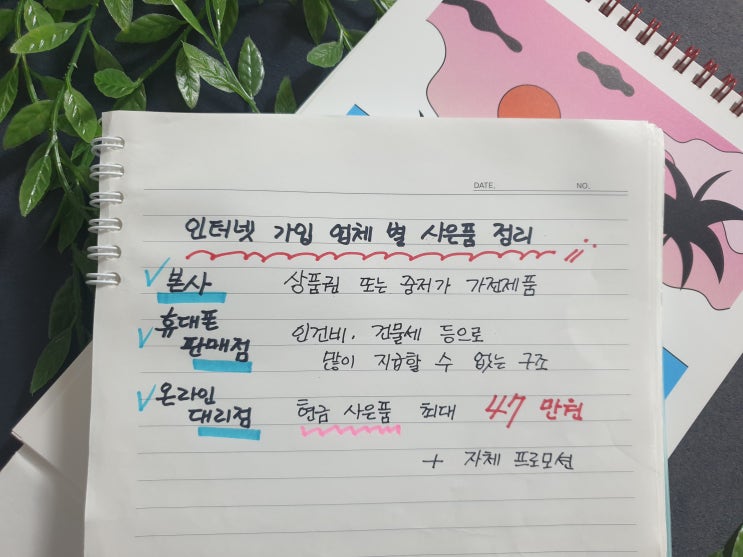 DATE. NO.
인터넷 가입 업체 별 사은품 정리
본사 상품권 또는 중저가 가전제품
휴대폰
판매점
인건비, 건물세 등으로
많이 지급할 수 없는 구조
온라인
대리점
현금 사은품 최대 47 만원
+ 자체 프로모션